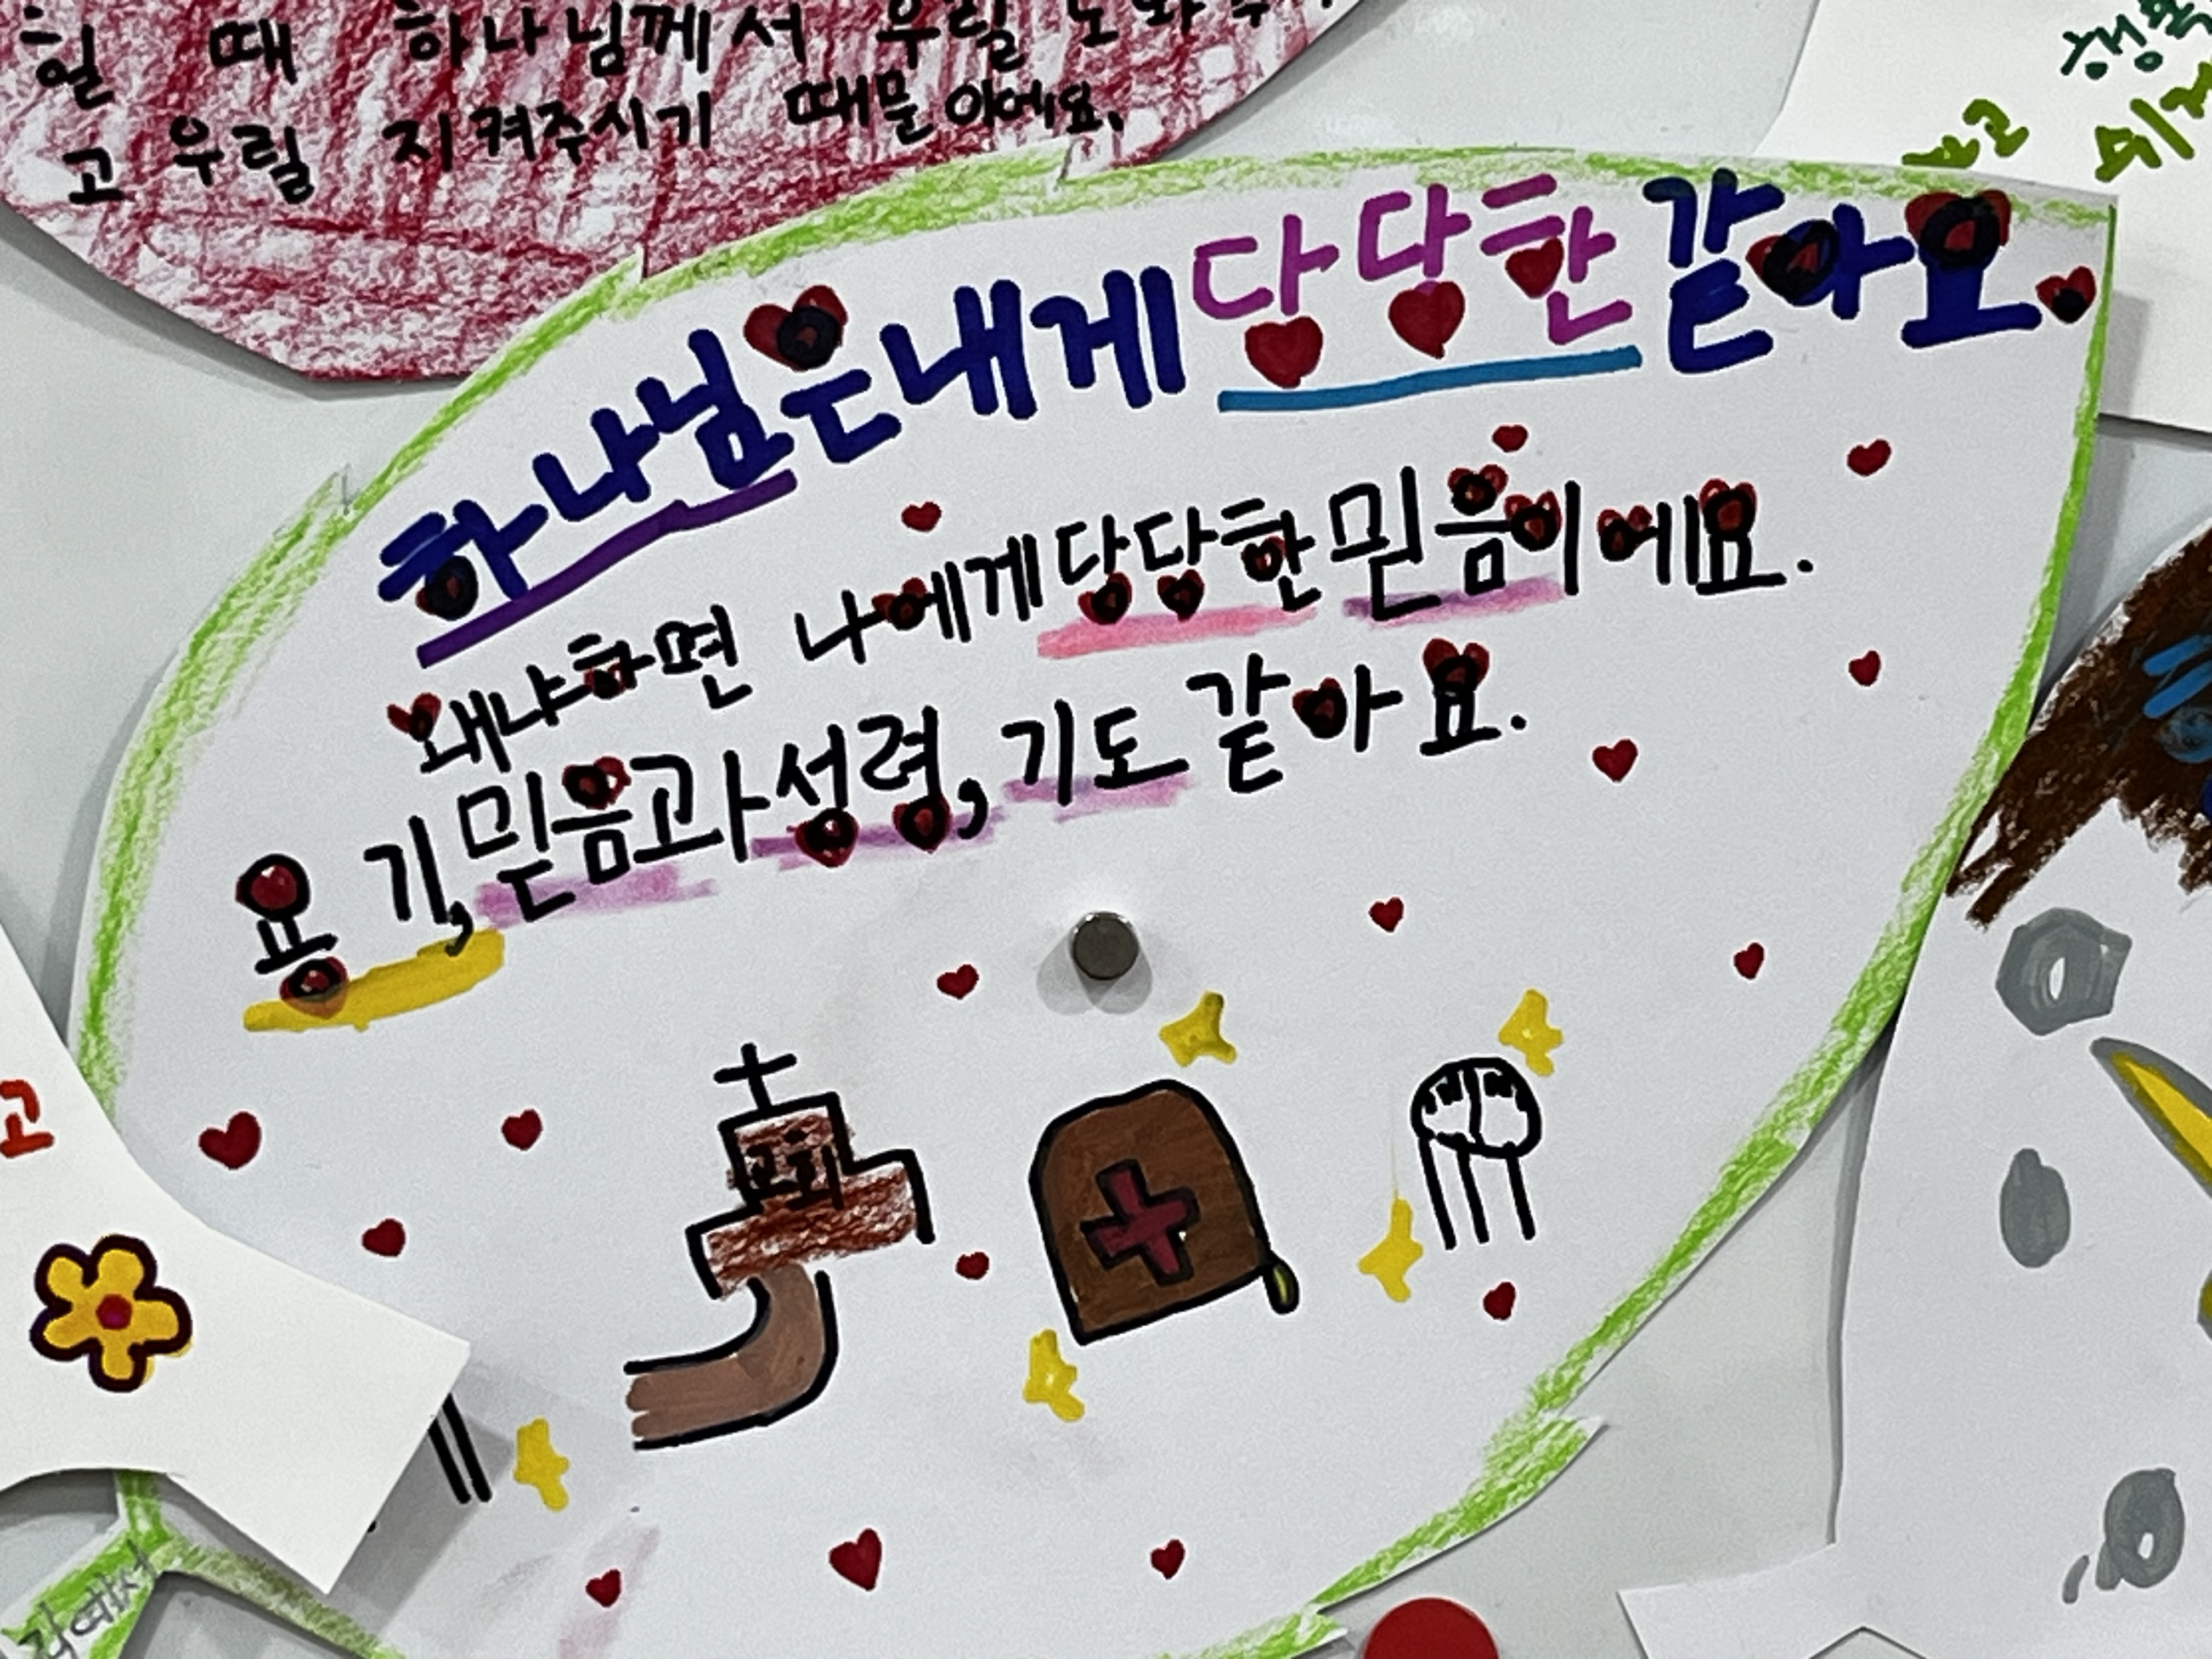 힐 때 하나님께서 우릴 도와주
고 우릴 지켜주시기 때믈이에요.
하나님은 내게 당당한 같아요.
왜냐하면 나에게 당당한 믿음이에요.
용기, 믿음과 성령, 기도 같아요.
교회
고